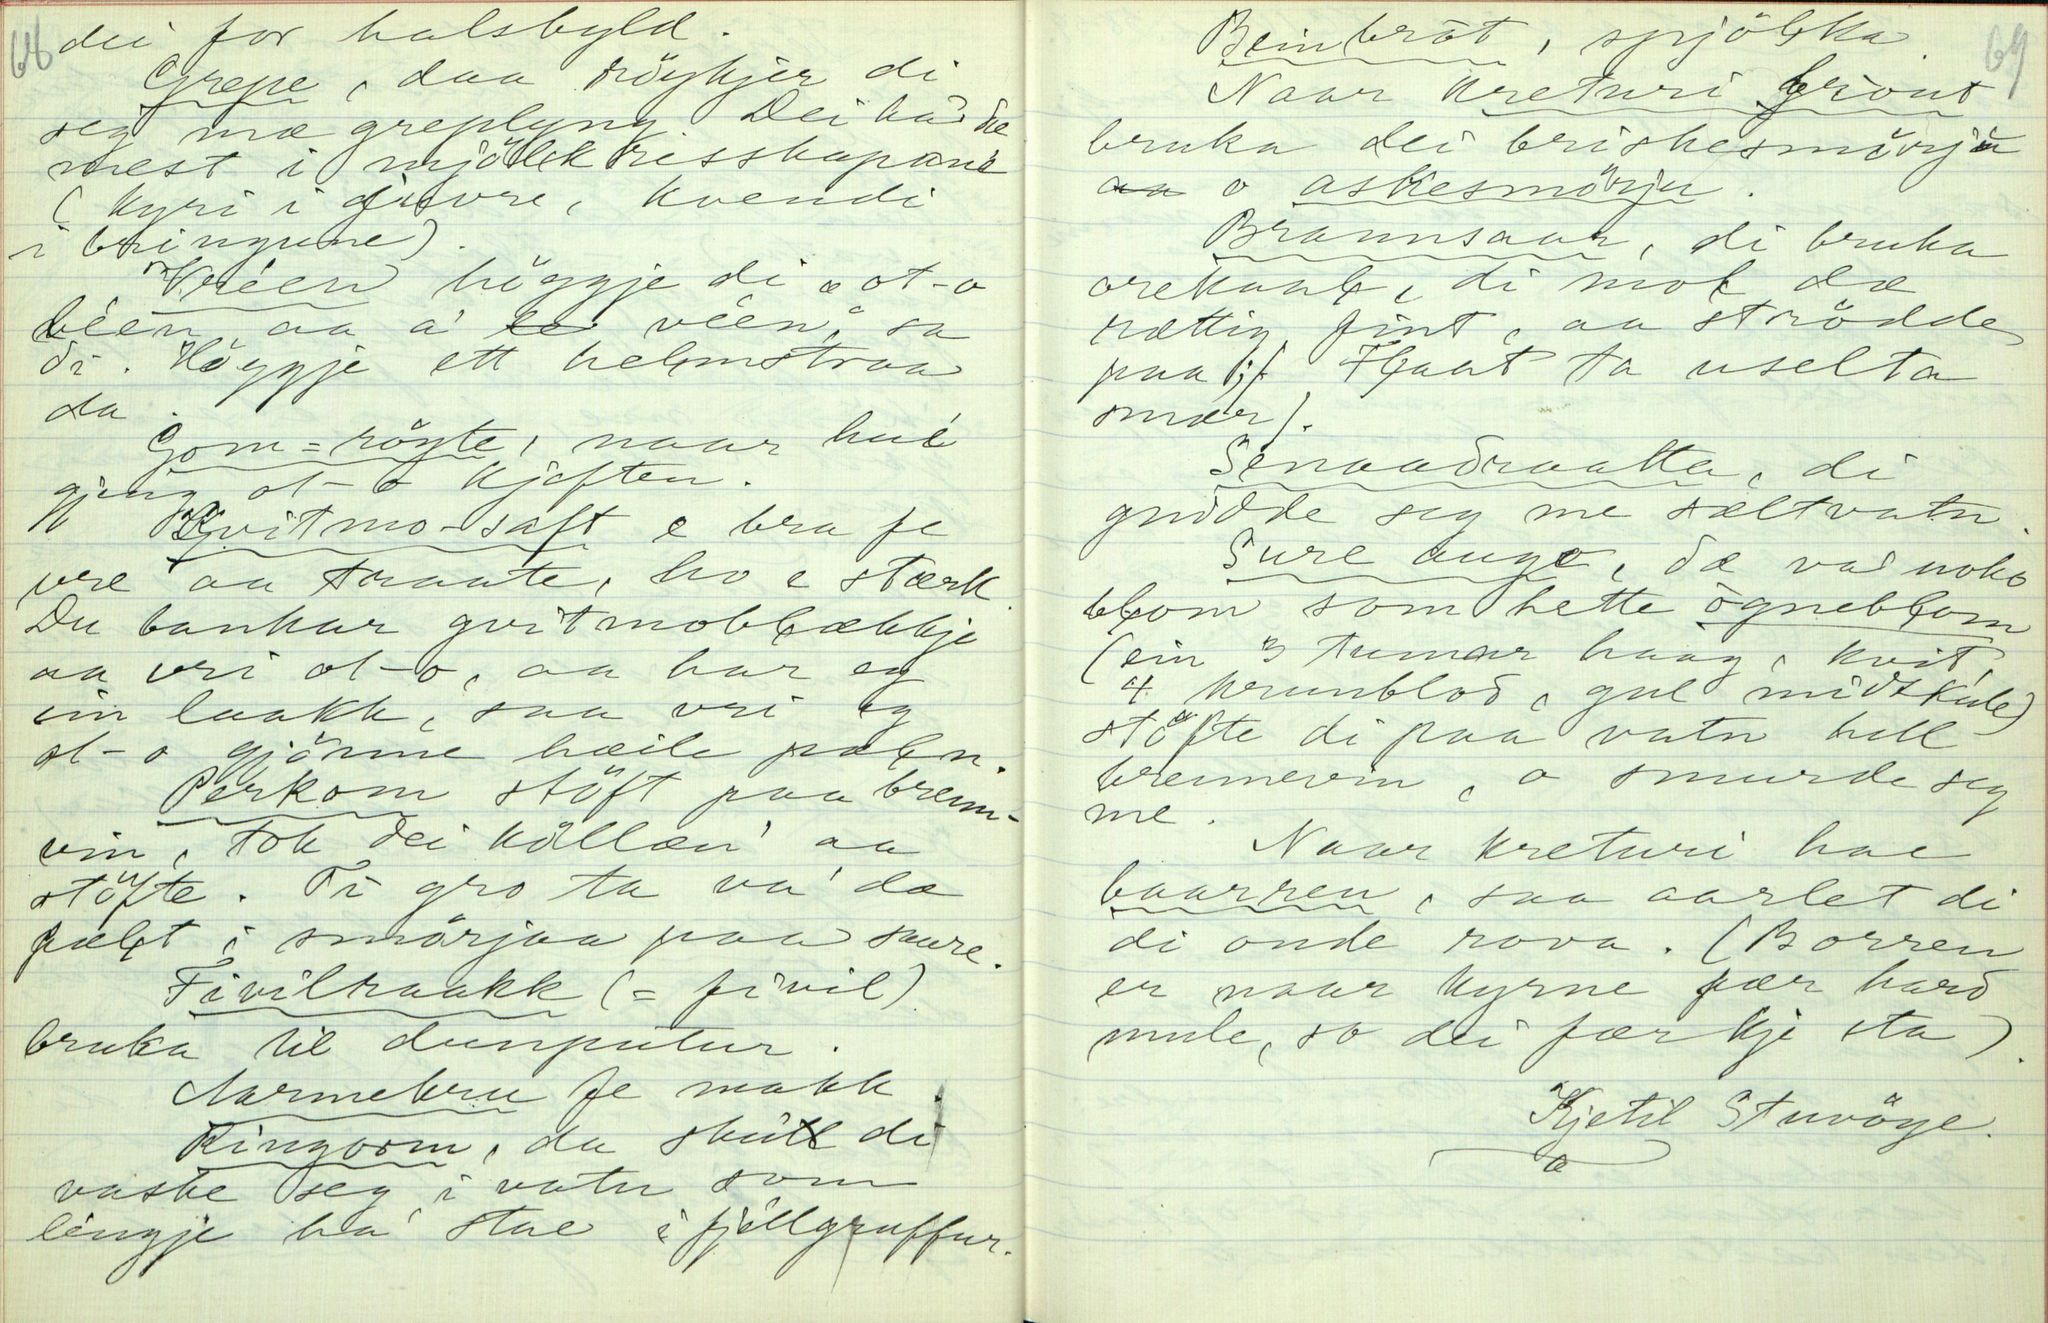 68
dei for halsbyld.
Grepe, daa röykjer di
seg mæ greplyng. Dei hadde
mest i mjölkresskapane
(kyri i juvre, kvendi
i bringune).
Vréen höggje di "ot-o
béen aa a véen", sa
di. Höggje ett helmstraa
da.
Gom=röyte, naar hul
gjeng ot-o kjeften.
Kvitmo-saft e bra fe
vre aa traate, ho e stærk.
Du bankar gvitmobLækkje
aa vri ot-o, aa har eg
ein laakk, saa vri eg
ot-o gjönne heile pæLn.
Perkom stöft paa brenn-
vin, tok dei kållæn' aa
stöfte. Ti gro ta va' dæ
jælt i smörjaa paa saare.
Tivilraakk (= fivil)
bruka til dunputur.
Aarmebru fe makk.
Ringorm, da skull di
vaske seg i vatn som
lengje ha' stae i fjellgruffur.
69
Beinbröt, spjöLka.
Naar kreturi brout
bruka dei briskesmörju
o askesmörju.
Brannsaar, di bruka
orekaaL, di moL dæ
rættig fint, aa strödde
paa (jf. FLaat ta uselta
smær).
Senaadraatta, di
gnidde seg me sæltvatn.
Sure augo, dæ va noko
bLom som hette ögnebLom
(ein 3 tumar haag, kvit,
4 krunblod, gul midtskive)
stöfte di paa vatn hell
brennevin, o smurde seg
me.
Naar kreturi hae
baarren, saa aarlet di
di onde rova. (Borren
er naar kyrne fær hard
mule, so dei fær kje sta).
Kjetil Stuvöye.